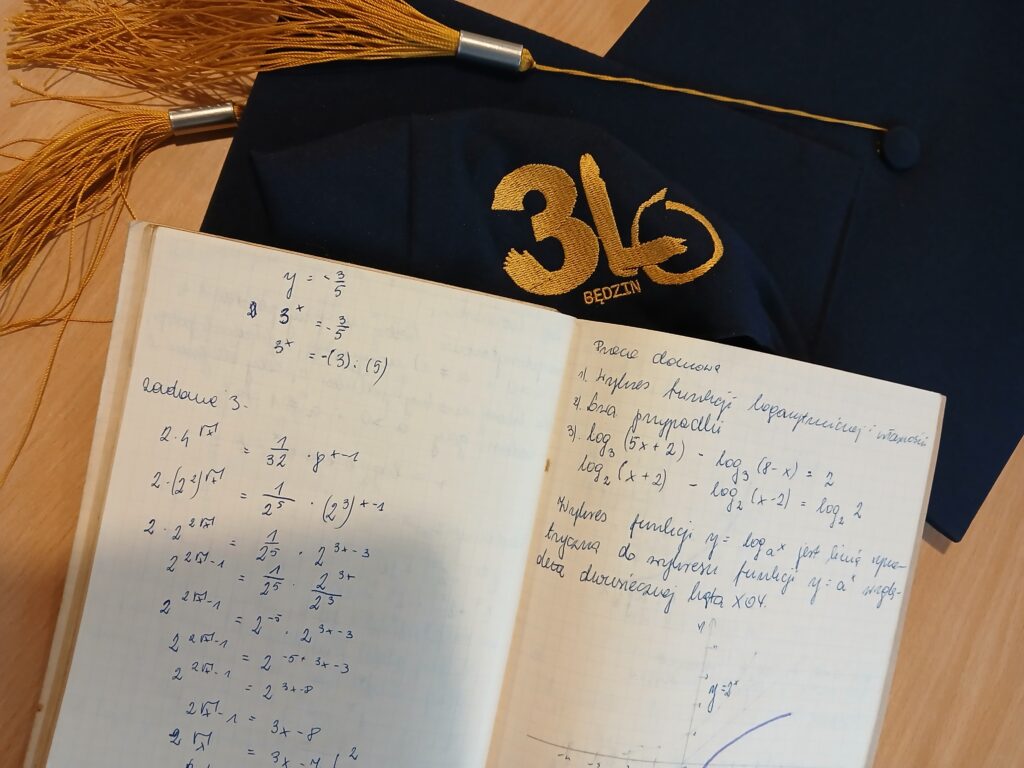 3LO
BĘDZIN
y = -3/5
3^x = -3/5
3^x = -(3):(5)
Zadanie 3.
2·4^√x = 1/32 · 8^x-1
2·(2²)^√x = 1/2⁵ · (2³)^x-1
2·2^2√x = 1/2⁵ · 2^3x-3
2^2√x-1 = 1/2⁵ · 2^3x/2³
2^2√x-1 = 2^-5 · 2^3x-3
2^2√x-1 = 2^-5+3x-3
2^2√x-1 = 2^3x-8
2√x-1 = 3x-8
2√x = 3x-7 |²
Praca domowa
1). Wykres funkcji logarytmicznej i własności
2). przypadki
3). log₃(5x+2) - log₃(8-x) = 2
log₂(x+2) - log₂(x-2) = log₂ 2
Wykres funkcji y = logₐx jest linią syme-
tryczną do wykresu funkcji y = aˣ wzglę-
dem dwusiecznej kąta XOY.
y=2ˣ